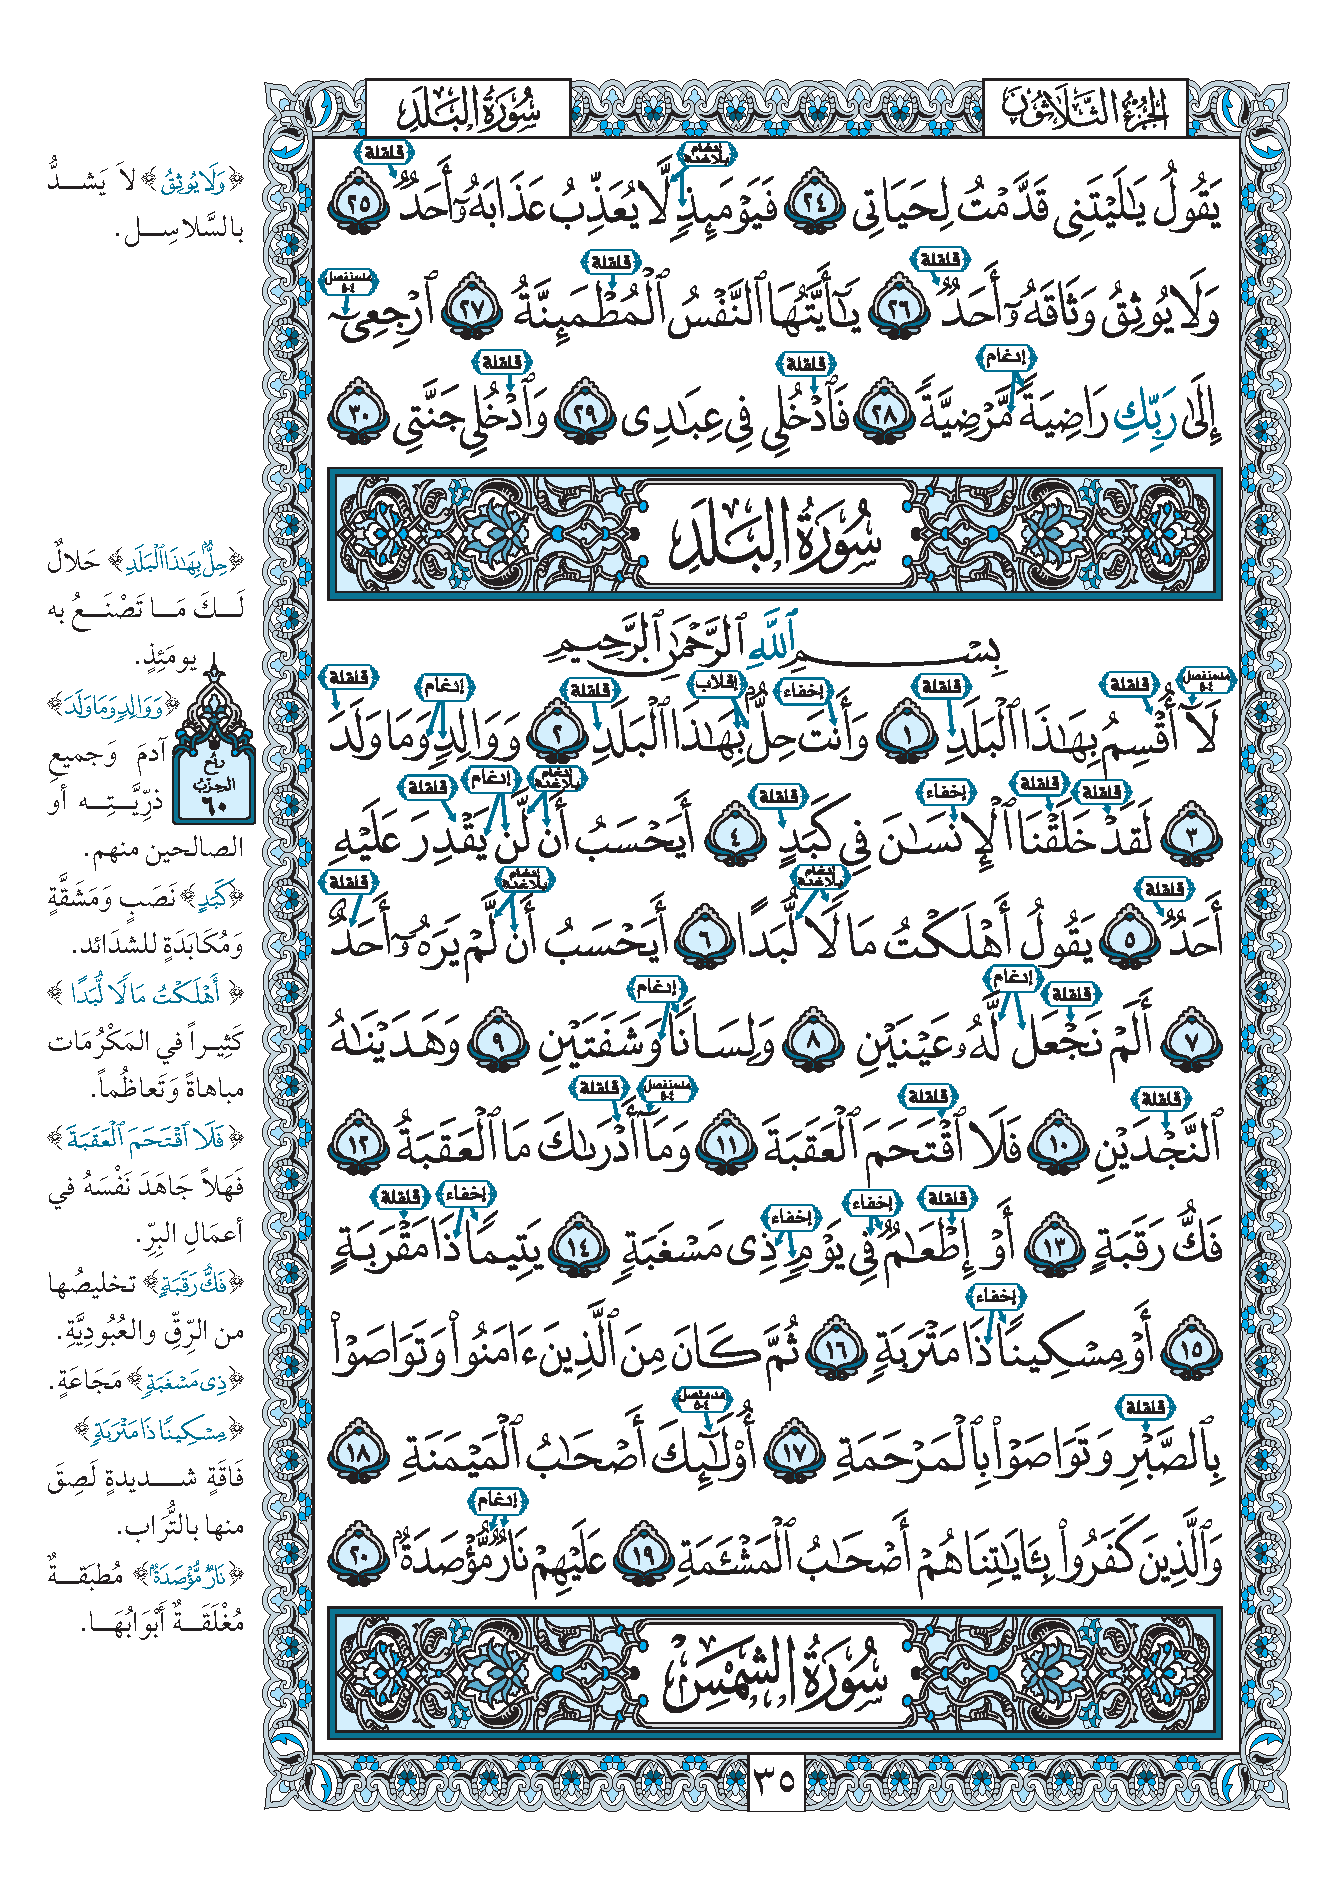 الجُزْءُ الثَّلَاثُونَ
سُورَةُ البَلَدِ
يَقُولُ يَٰلَيْتَنِى قَدَّمْتُ لِحَيَاتِى ٢٤ فَيَوْمَئِذٍ لَّا يُعَذِّبُ عَذَابَهُۥٓ أَحَدٌ ٢٥
وَلَا يُوثِقُ وَثَاقَهُۥٓ أَحَدٌ ٢٦ يَٰٓأَيَّتُهَا ٱلنَّفْسُ ٱلْمُطْمَئِنَّةُ ٢٧ ٱرْجِعِىٓ
إِلَىٰ رَبِّكِ رَاضِيَةً مَّرْضِيَّةً ٢٨ فَٱدْخُلِى فِى عِبَٰدِى ٢٩ وَٱدْخُلِى جَنَّتِى ٣٠
سُورَةُ البَلَدِ
بِسْمِ ٱللَّهِ ٱلرَّحْمَٰنِ ٱلرَّحِيمِ
لَآ أُقْسِمُ بِهَٰذَا ٱلْبَلَدِ ١ وَأَنتَ حِلٌّۢ بِهَٰذَا ٱلْبَلَدِ ٢ وَوَالِدٍ وَمَا وَلَدَ
٣ لَقَدْ خَلَقْنَا ٱلْإِنسَٰنَ فِى كَبَدٍ ٤ أَيَحْسَبُ أَن لَّن يَقْدِرَ عَلَيْهِ
أَحَدٌ ٥ يَقُولُ أَهْلَكْتُ مَالًا لُّبَدًا ٦ أَيَحْسَبُ أَن لَّمْ يَرَهُۥٓ أَحَدٌ
٧ أَلَمْ نَجْعَل لَّهُۥ عَيْنَيْنِ ٨ وَلِسَانًا وَشَفَتَيْنِ ٩ وَهَدَيْنَٰهُ
ٱلنَّجْدَيْنِ ١٠ فَلَا ٱقْتَحَمَ ٱلْعَقَبَةَ ١١ وَمَآ أَدْرَىٰكَ مَا ٱلْعَقَبَةُ ١٢
فَكُّ رَقَبَةٍ ١٣ أَوْ إِطْعَٰمٌ فِى يَوْمٍ ذِى مَسْغَبَةٍ ١٤ يَتِيمًا ذَا مَقْرَبَةٍ
١٥ أَوْ مِسْكِينًا ذَا مَتْرَبَةٍ ١٦ ثُمَّ كَانَ مِنَ ٱلَّذِينَ ءَامَنُوا۟ وَتَوَاصَوْا۟
بِٱلصَّبْرِ وَتَوَاصَوْا۟ بِٱلْمَرْحَمَةِ ١٧ أُو۟لَٰٓئِكَ أَصْحَٰبُ ٱلْمَيْمَنَةِ ١٨
وَٱلَّذِينَ كَفَرُوا۟ بِـَٔايَٰتِنَا هُمْ أَصْحَٰبُ ٱلْمَشْـَٔمَةِ ١٩ عَلَيْهِمْ نَارٌ مُّؤْصَدَةٌۢ ٢٠
سُورَةُ الشَّمْسِ
٣٥
﴿وَلَا يُوثِقُ﴾ لاَ يَشــدُّ
بالسَّلاسِــل.
﴿حِلٌّۢ بِهَٰذَا ٱلْبَلَدِ﴾ حَلالٌ
لَــكَ مَــا تَصْنَــعُ به
يومَئِذٍ.
﴿وَوَالِدٍ وَمَا وَلَدَ﴾
آدمَ وَجميعِ
ذرِّيَّــتِــهِ أو
الصالحين منهم.
ربع
الحزب
٦٠
﴿كَبَدٍ﴾ نَصَبٍ وَمَشَقَّةٍ
وَمُكَابَدَةٍ للشدَائد.
﴿أَهْلَكْتُ مَالًا لُّبَدًا﴾
كَثِيــراً في المَكْرُمَات
مباهاةً وَتَعاظُماً.
﴿فَلَا ٱقْتَحَمَ ٱلْعَقَبَةَ﴾
فَهَلاَّ جَاهَدَ نَفْسَهُ في
أعمَالِ البِرِّ.
﴿فَكُّ رَقَبَةٍ﴾ تخليصُها
من الرِّقِّ والعُبُودِيَّةِ.
﴿ذِى مَسْغَبَةٍ﴾ مَجَاعَةٍ.
﴿مِسْكِينًا ذَا مَتْرَبَةٍ﴾
فَاقَةٍ شــديدةٍ لَصِقَ
منها بالتُّرَاب.
﴿نَارٌ مُّؤْصَدَةٌۢ﴾ مُطبَقــةٌ
مُغْلَقَــةٌ أَبْوَابُهَــا.